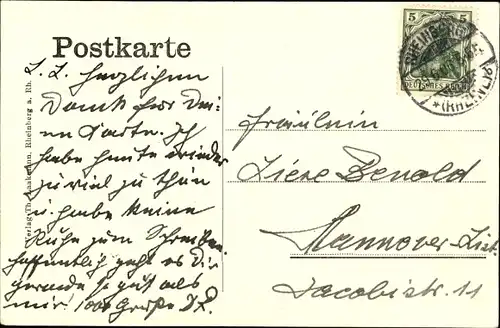 Postkarte
L. L. Herzlichen
Dank für Dei-
ne Karte. Ich
habe heute wieder
zu viel zu thun
u. habe keine
Ruhe zum Schreiben.
hoffentlich geht es Dir
gerade so gut als
mir! 1000 Grüße
Verlag: Rheinberg a. Rh.
5 5
DEUTSCHES REICH
RHEINBERG
*(RHEINL.)*
Fräulein
Hannover-List
Jacobistr. 11